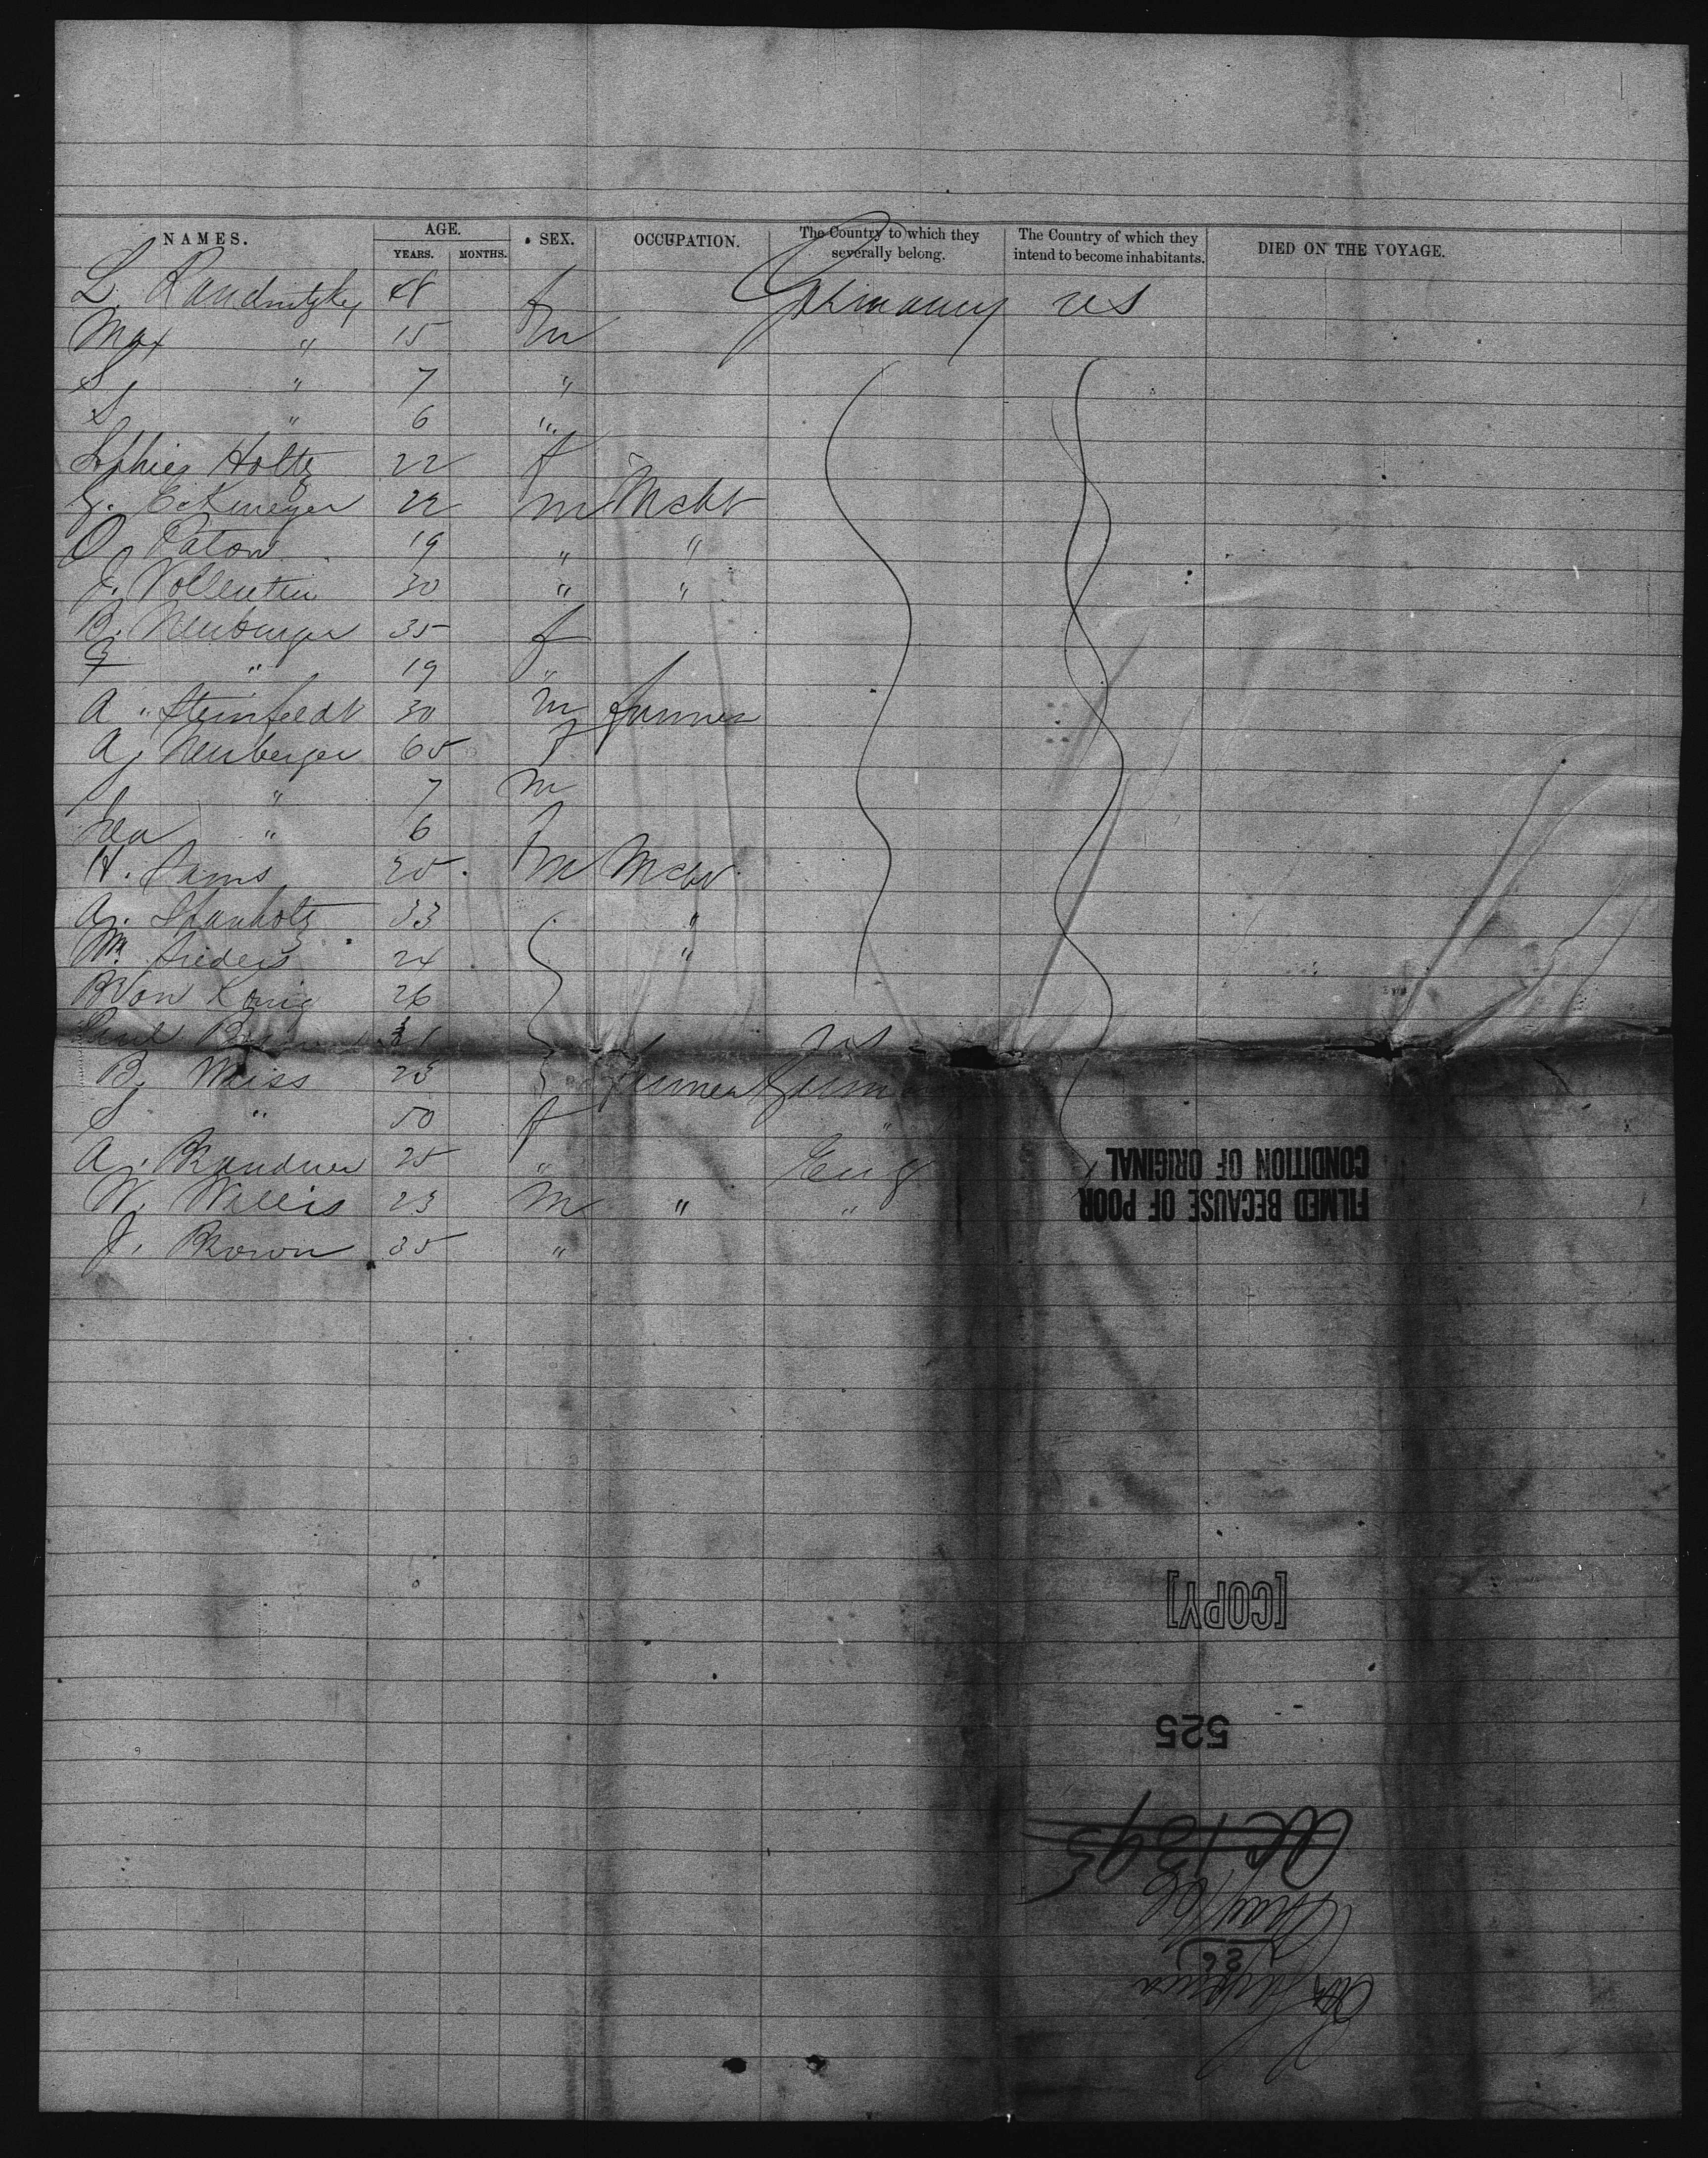 NAMES. AGE. YEARS. MONTHS. SEX. OCCUPATION. The Country to which they severally belong. The Country of which they intend to become inhabitants. DIED ON THE VOYAGE.
L. Raudnitzky 48 f Germany US
Max " 15 m
S " 7 "
S " 6 "
Sophie Holtz 22 f
G. Eckmeyer 22 m Mcht
O. Paton 19 " "
J. Vollentin 30 " "
B. Neuburger 35 f
G " 19 "
A. Steinfeldt 30 m farmer
A. Neuberger 65 f
S " 7 m
Lea " 6 f
H. Sams 20 m Mcht
A. Shanholtz 33 "
M. Sieders 24 "
B Von Konig 26
Paul 31 US
B. Weiss 23 farmer Germ
S " 50 f "
A. Brandner 25 " Eng
W. Willis 23 m " "
J. Brown 35 "
FILMED BECAUSE OF POOR
CONDITION OF ORIGINAL
[COPY]
525
1395
May
26